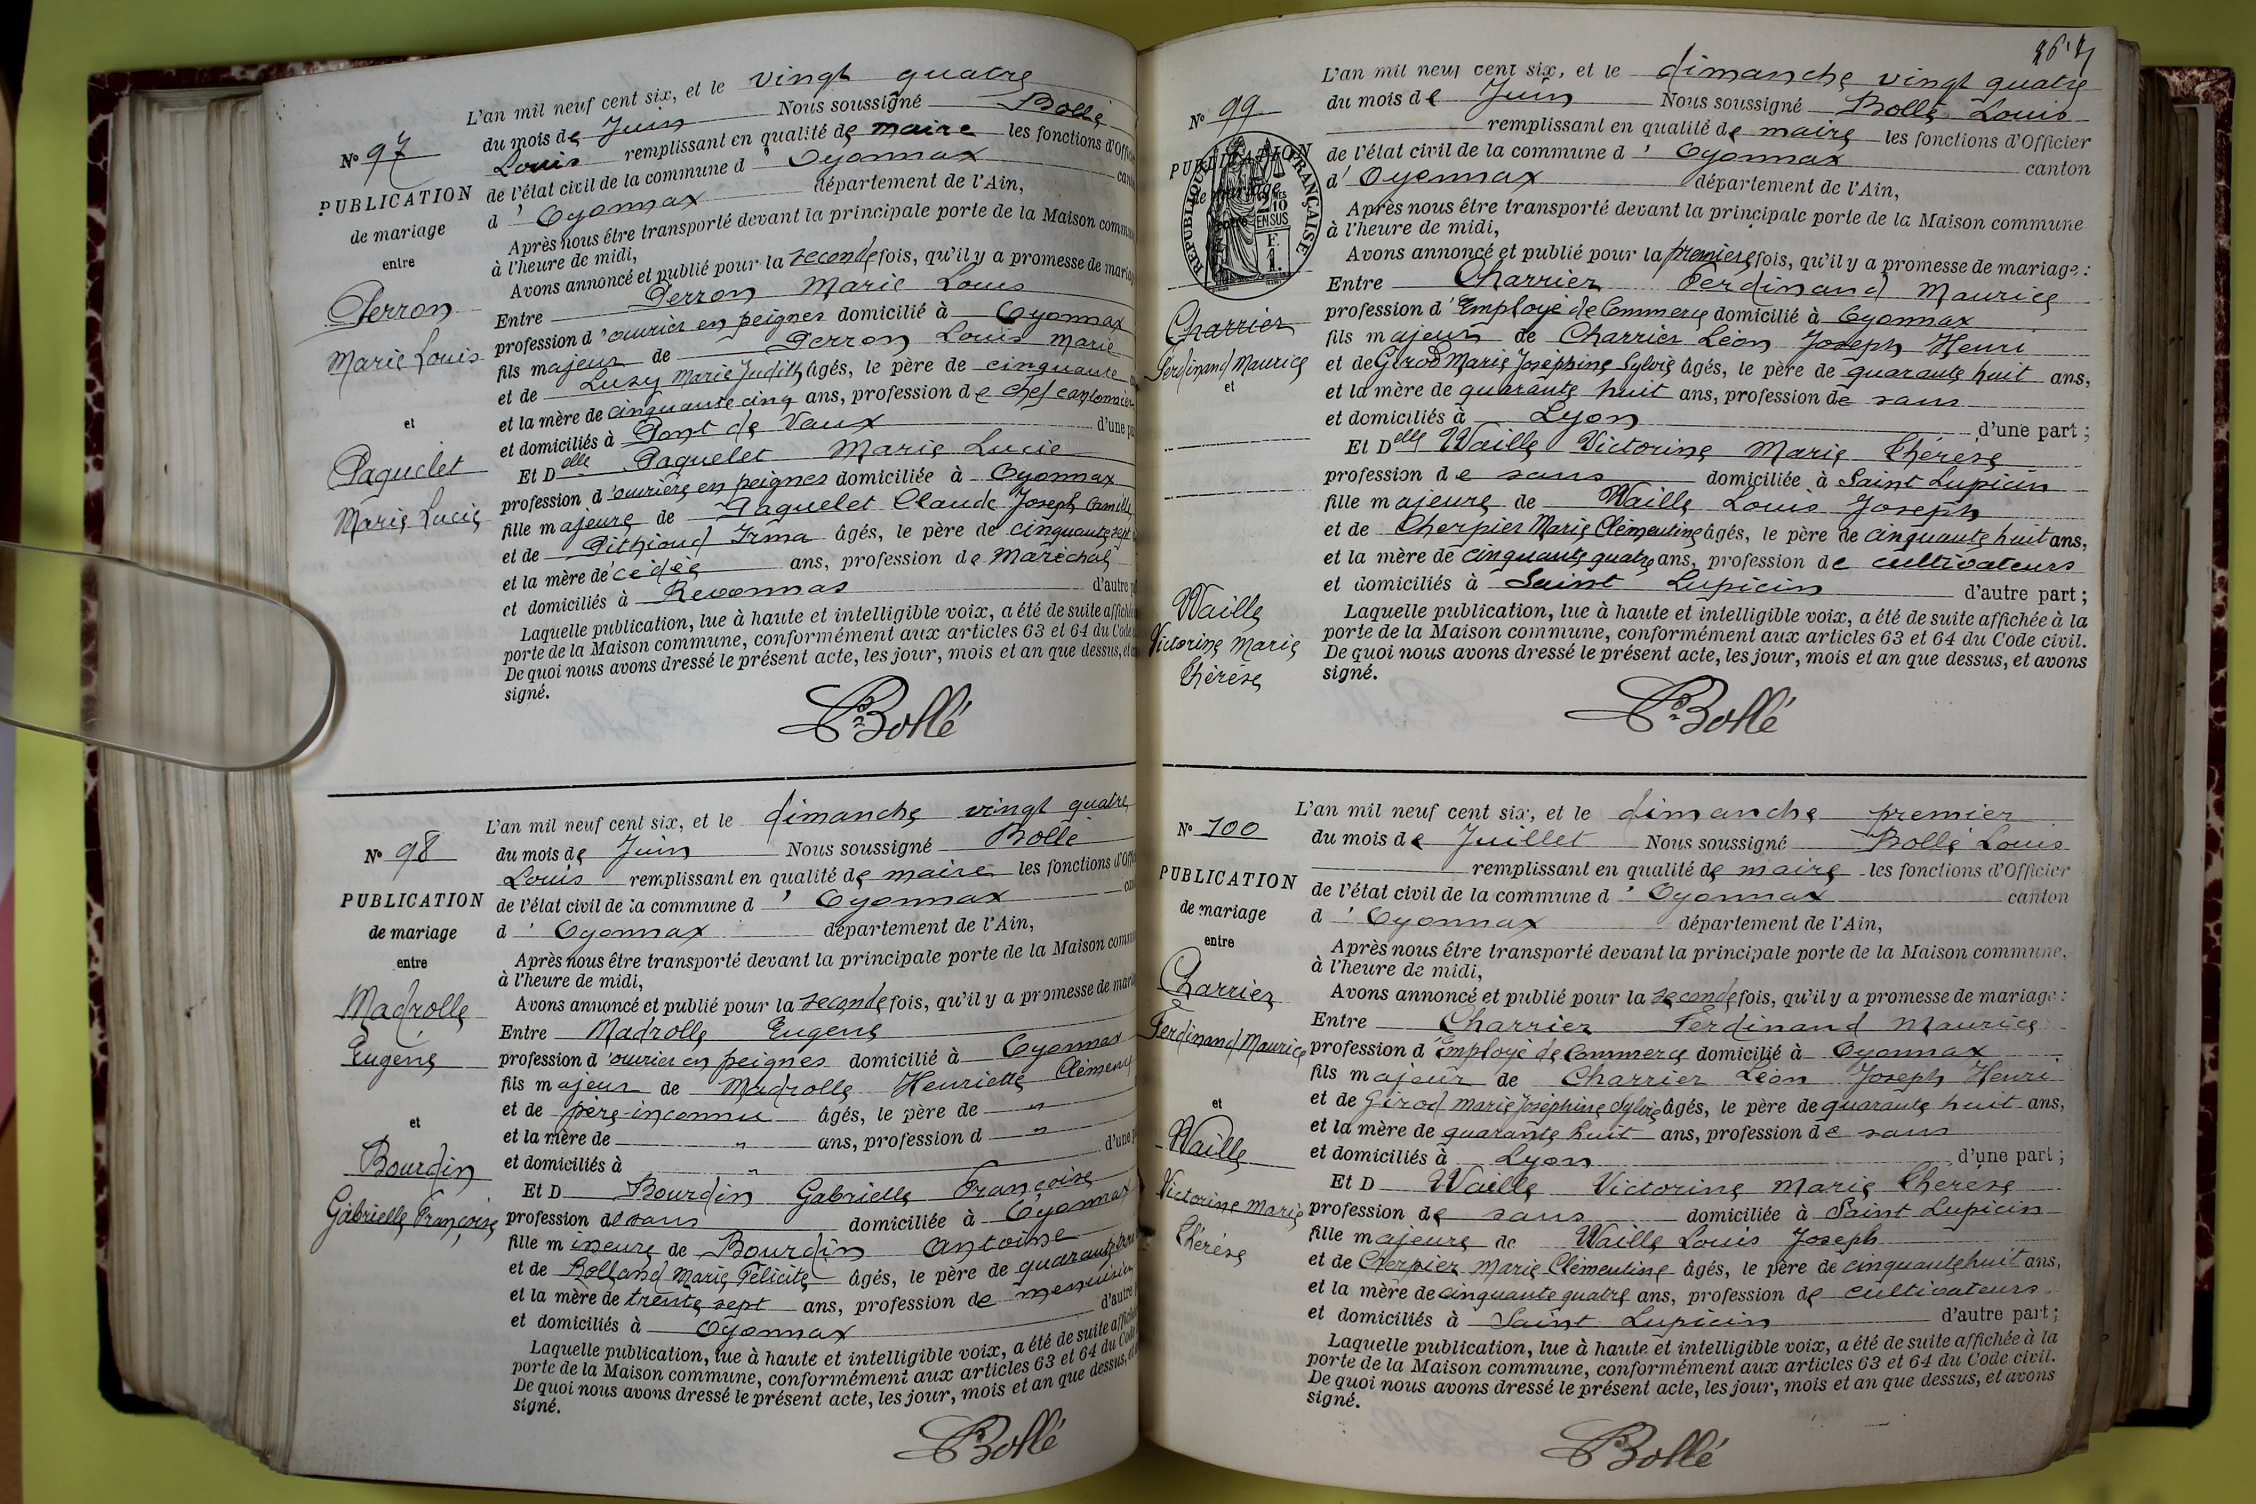 L'an mil neuf cent six, et le vingt quatre
du mois de Juin Nous soussigné Bollé
Louis remplissant en qualité de maire les fonctions d'Offic
de l'état civil de la commune d' Oyonnax can
d' Oyonnax département de l'Ain,
Après nous être transporté devant la principale porte de la Maison commu
à l'heure de midi,
Avons annoncé et publié pour la seconde fois, qu'il y a promesse de maria
Entre Perron Marie Louis
profession d'ouvrier en peignes domicilié à Oyonnax
fils majeur de Perron Louis Marie
et de Luzy Marie Judith âgés, le père de cinquante
et la mère de cinquante cinq ans, profession de chef cantonnier
et domiciliés à Pont de Vaux d'une pa
Et Delle Paquelet Marie Lucie
profession d'ouvrière en peignes domiciliée à Oyonnax
fille majeure de Paquelet Claude Joseph Camille
et de Pithioud Irma âgés, le père de cinquante sept
et la mère décédée ans, profession de Maréchal
et domiciliés à Revonnas d'autre p
Laquelle publication, lue à haute et intelligible voix, a été de suite affichée
porte de la Maison commune, conformément aux articles 63 et 64 du Code
De quoi nous avons dressé le présent acte, les jour, mois et an que dessus, et
signé.
Ls Bollé
N° 97
PUBLICATION
de mariage
entre
Perron
Marie Louis
et
Paquelet
Marie Lucie
L'an mil neuf cent six, et le dimanche vingt quatre
du mois de Juin Nous soussigné Bollé
Louis remplissant en qualité de maire les fonctions d'Offi
de l'état civil de la commune d' Oyonnax can
d' Oyonnax département de l'Ain,
Après nous être transporté devant la principale porte de la Maison commu
à l'heure de midi,
Avons annoncé et publié pour la seconde fois, qu'il y a promesse de mari
Entre Madrolle Eugène
profession d'ouvrier en peignes domicilié à Oyonnax
fils majeur de Madrolle Henriette Clémence
et de père inconnu âgés, le père de "
et la mère de " ans, profession d "
et domiciliés à " d'une p
Et D Bourdin Gabrielle Françoise
profession de sans domiciliée à Oyonnax
fille mineure de Bourdin Antoine
et de Rolland Marie Félicité âgés, le père de quarante
et la mère de trente sept ans, profession de menuisier
et domiciliés à Oyonnax d'autre
Laquelle publication, lue à haute et intelligible voix, a été de suite affiché
porte de la Maison commune, conformément aux articles 63 et 64 du Code
De quoi nous avons dressé le présent acte, les jour, mois et an que dessus, et
signé.
Bollé
N° 98
PUBLICATION
de mariage
entre
Madrolle
Eugène
et
Bourdin
Gabrielle Françoise
L'an mil neuf cent six, et le dimanche vingt quatre
du mois de Juin Nous soussigné Bollé Louis
remplissant en qualité de maire les fonctions d'Officier
de l'état civil de la commune d' Oyonnax canton
d' Oyonnax département de l'Ain,
Après nous être transporté devant la principale porte de la Maison commune
à l'heure de midi,
Avons annoncé et publié pour la première fois, qu'il y a promesse de mariage :
Entre Charrier Ferdinand Maurice
profession d'Employé de Commerce domicilié à Oyonnax
fils majeur de Charrier Léon Joseph Henri
et de Girod Marie Joséphine Sylvie âgés, le père de quarante huit ans,
et la mère de quarante huit ans, profession de sans
et domiciliés à Lyon d'une part ;
Et Delle Waille Victorine Marie Thérèse
profession de sans domiciliée à Saint Lupicin
fille majeure de Waille Louis Joseph
et de Cherpier Marie Clémentine âgés, le père de cinquante huit ans,
et la mère de cinquante quatre ans, profession de cultivateurs
et domiciliés à Saint Lupicin d'autre part ;
Laquelle publication, lue à haute et intelligible voix, a été de suite affichée à la
porte de la Maison commune, conformément aux articles 63 et 64 du Code civil.
De quoi nous avons dressé le présent acte, les jour, mois et an que dessus, et avons
signé.
Ls Bollé
N° 99
PUBLICATION
de mariage
RÉPUBLIQUE FRANÇAISE
2/10 EN SUS
F. 1.
Charrier
Ferdinand Maurice
et
Waille
Victorine Marie
Thérèse
L'an mil neuf cent six, et le dimanche premier
du mois de Juillet Nous soussigné Bollé Louis
remplissant en qualité de maire les fonctions d'Officier
de l'état civil de la commune d' Oyonnax canton
d' Oyonnax département de l'Ain,
Après nous être transporté devant la principale porte de la Maison commune,
à l'heure de midi,
Avons annoncé et publié pour la seconde fois, qu'il y a promesse de mariage :
Entre Charrier Ferdinand Maurice
profession d'Employé de Commerce domicilié à Oyonnax
fils majeur de Charrier Léon Joseph Henri
et de Girod Marie Joséphine Sylvie âgés, le père de quarante huit ans,
et la mère de quarante huit ans, profession de sans
et domiciliés à Lyon d'une part ;
Et D Waille Victorine Marie Thérèse
profession de sans domiciliée à Saint Lupicin
fille majeure de Waille Louis Joseph
et de Cherpier Marie Clémentine âgés, le père de cinquante huit ans,
et la mère de cinquante quatre ans, profession de cultivateurs
et domiciliés à Saint Lupicin d'autre part ;
Laquelle publication, lue à haute et intelligible voix, a été de suite affichée à la
porte de la Maison commune, conformément aux articles 63 et 64 du Code civil.
De quoi nous avons dressé le présent acte, les jour, mois et an que dessus, et avons
signé.
Bollé
N° 100
PUBLICATION
de mariage
entre
Charrier
Ferdinand Maurice
et
Waille
Victorine Marie
Thérèse